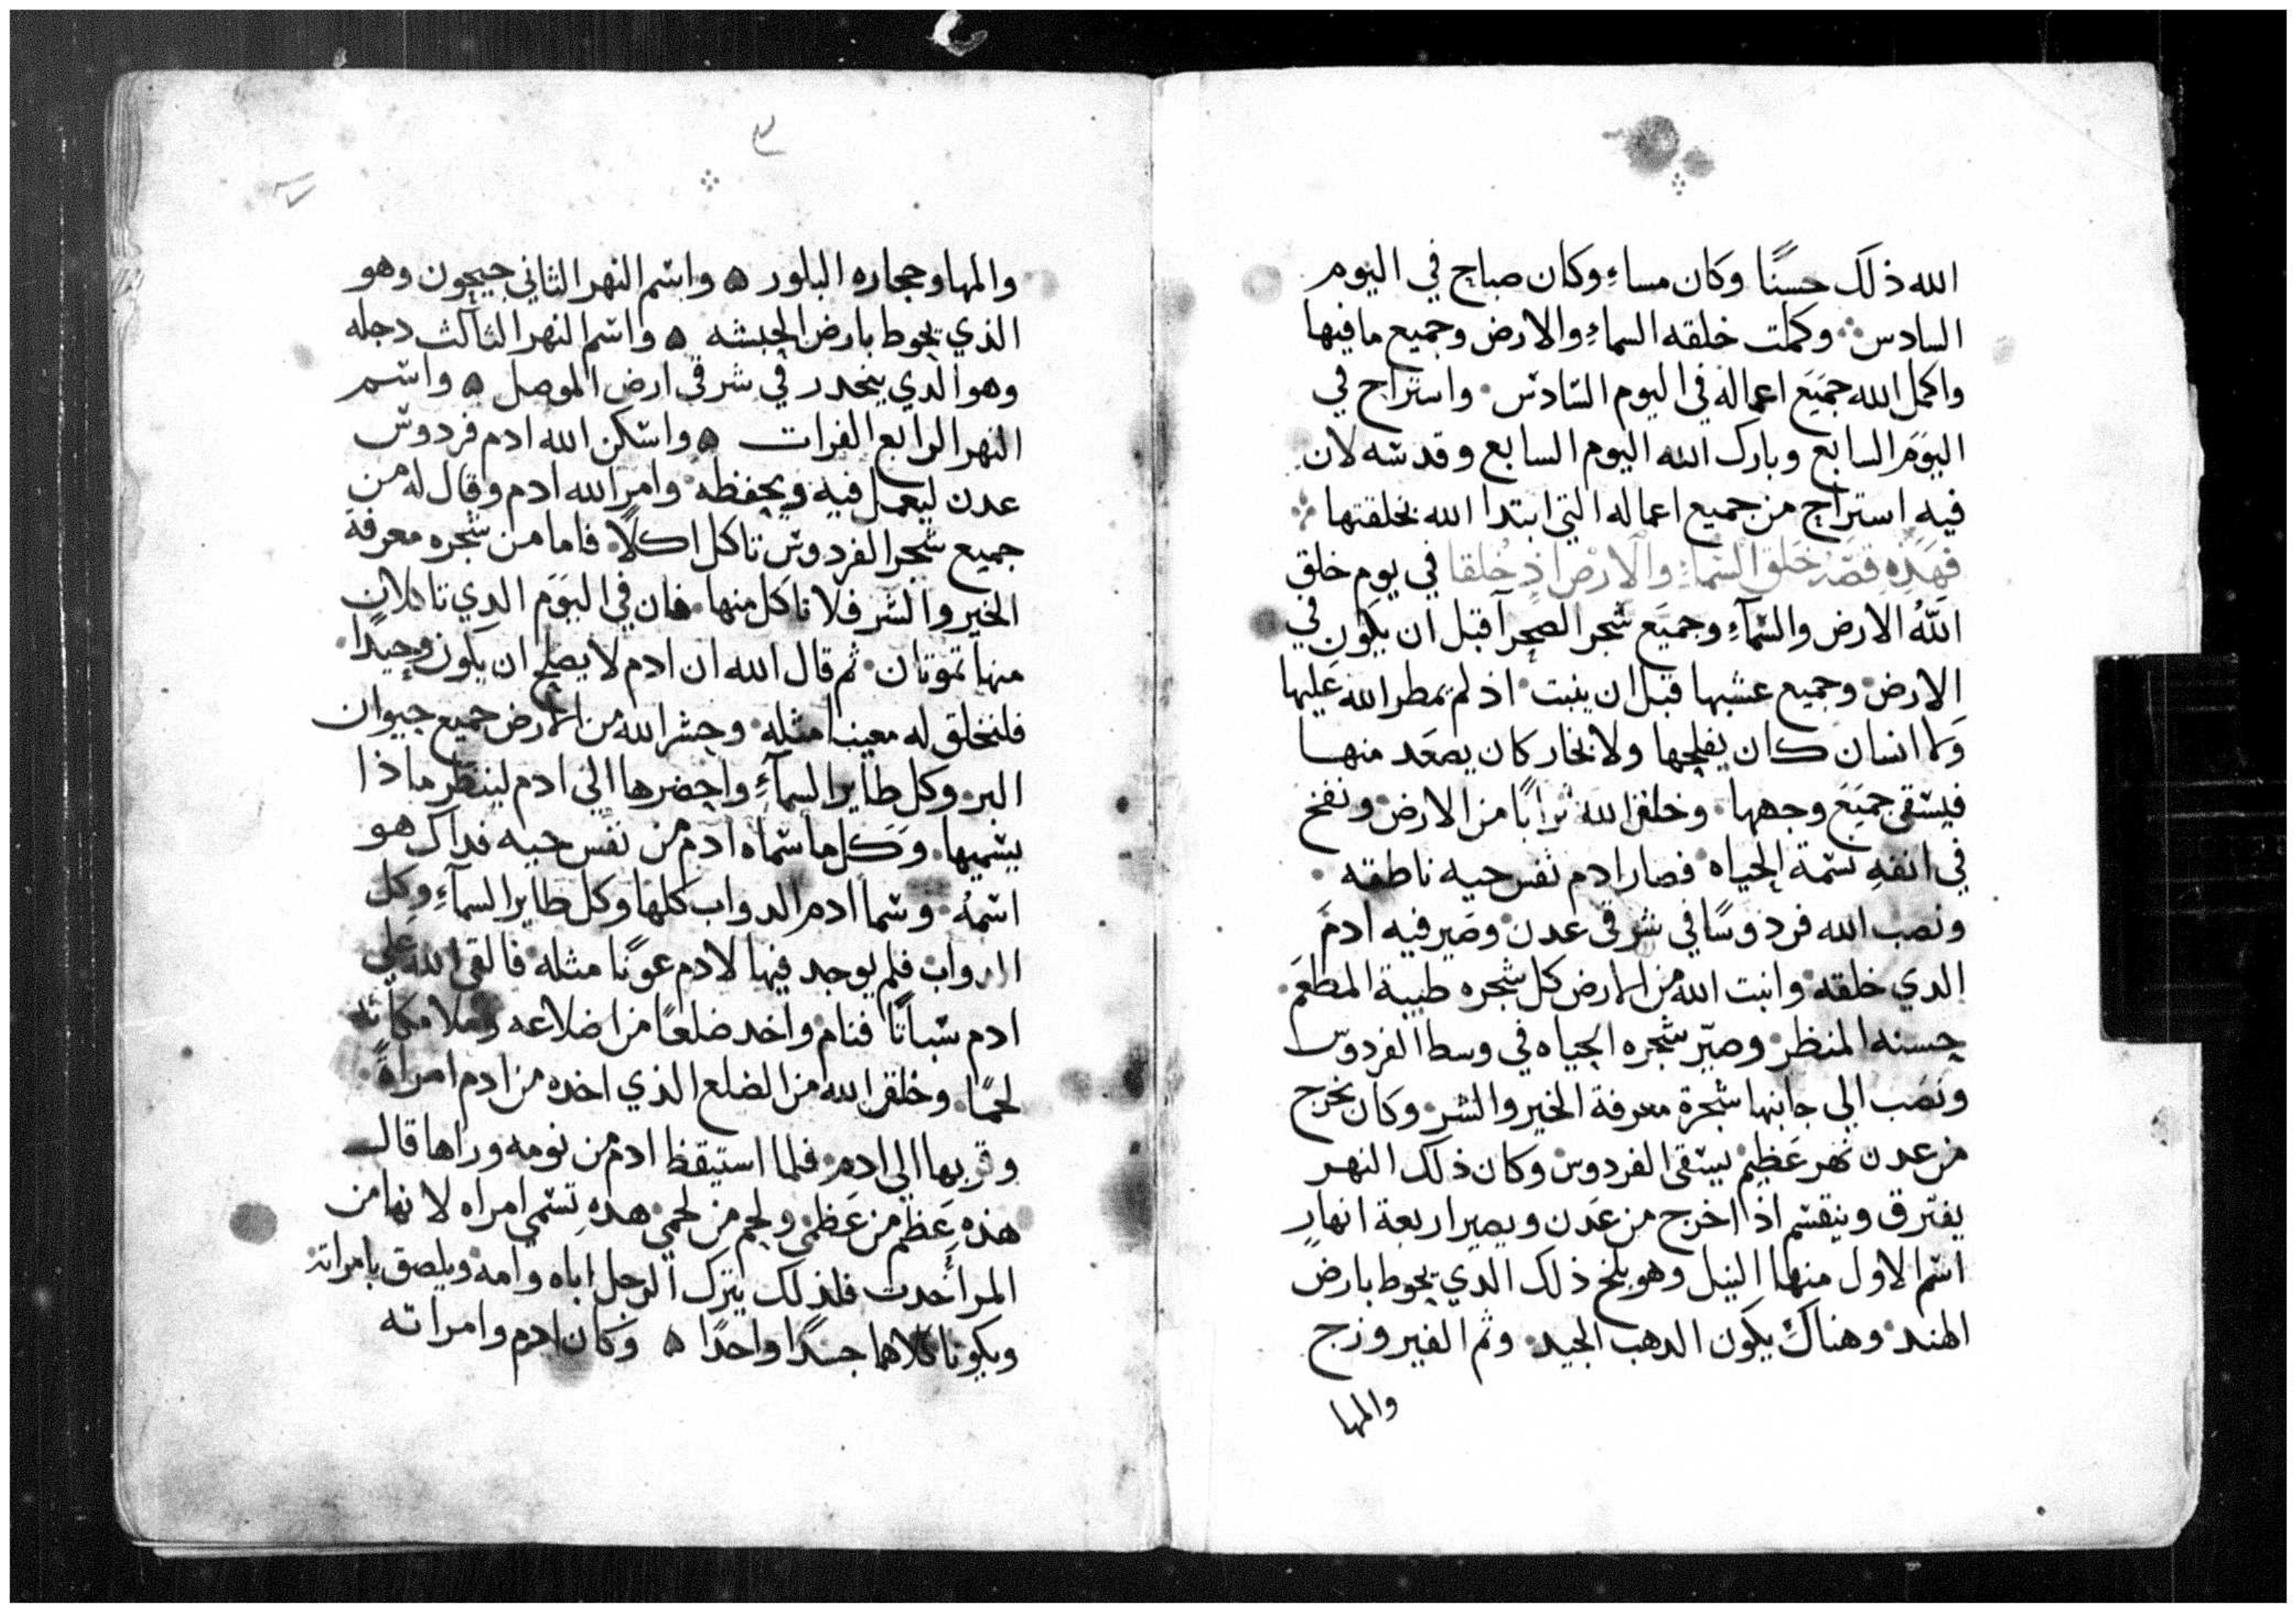 الله ذلك حسنًا وكان مساءٍ وكان صباح في اليوم
السادس وكملت خلقه السماءِ والارض وجميع مافيها
واكمل الله جميع اعماله في اليوم السادس واستراح في
اليوم السابع وبارك الله اليوم السابع وقدسه لان
فيه استراح من جميع اعماله التي ابتدا الله بخلقتها
فهذه قصة خلق السماءِ والارض اذ خلقا في يوم خلق
اللهُ الارض والسمآءِ وجميع شجر الصحرآ قبل ان يكون في
الارض وجميع عشبها قبل ان ينبت اذ لم يمطر الله عليها
ولا انسان كان يفلحها ولا بخار كان يصعد منها
فيسقى جميع وجهها وخلق الله ترابًا من الارض ونفخ
في انفهِ نسمة الحياه فصار ادم نفس حيه ناطقه
ونصب الله فردوسًا في شرقى عدن وصير فيه ادم
الدي خلقه وانبت الله من الارض كل شجره طيبة المطعم
حسنه المنظر وصيّر شجره الحياه في وسط الفردوس
ونصب الي جانبها شجرة معرفة الخير والشر وكان يخرج
من عدن نهر عظيم يسقى الفردوس وكان ذلك النهر
يفترق وينقسم اذا خرج من عدن ويصير اربعة انهار
اسم الاول منها النيل وهو بلخ ذلك الدي يحوط بارض
الهند وهناك يكون الدهب الجيد وثم الفيروزج
والمها
٣
والمها وحجاره البلور ه واسم النهر الثاني جيحون وهو
الذي يحوط بارض الحبشه ه واسم النهر الثالث دجله
وهو الدي ينحدر في شرقى ارض الموصل ه واسم
النهر الرابع الفرات ه واسكن الله ادم فردوس
عدن ليعمل فيه ويحفظه وامر الله ادم وقال له من
جميع شجر الفردوس تاكل اكلًا فاما من شجره معرفة
الخير والشر فلا تاكل منها فان في اليوم الدي تاكلان
منها تموتان ثم قال الله ان ادم لا يصلح ان يكون وحيدًا
فلنخلق له معينا مثله وحشر الله من الارض جميع حيوان
البر وكل طاير السمآءِ واحضرها الي ادم لينظر ماذا
يسميها وكل ما سماه ادم من نفس حيه فداك هو
اسمهُ وسما ادم الدواب كلها وكل طاير السمآءِ وكل
الدواب فلم يوجد فيها لادم عونًا مثله فالقى الله علي
ادم سباتًا فنام واخد ضلعًا من اضلاعه وملا مكانه
لحمًا وخلق الله من الضلع الذي اخده من ادم امراةً
وقربها الي ادم فلما استيقظ ادم من نومه وراها قال
هذهِ عظم من عظمي ولحم من لحمي هدهِ تسمي امراه لانها من
المرأ خدت فلذلك يترك الرجل اباه وامه ويلصق بامراته
ويكونا كلاهما جسدًا واحدًا ه وكان ادم وامراته